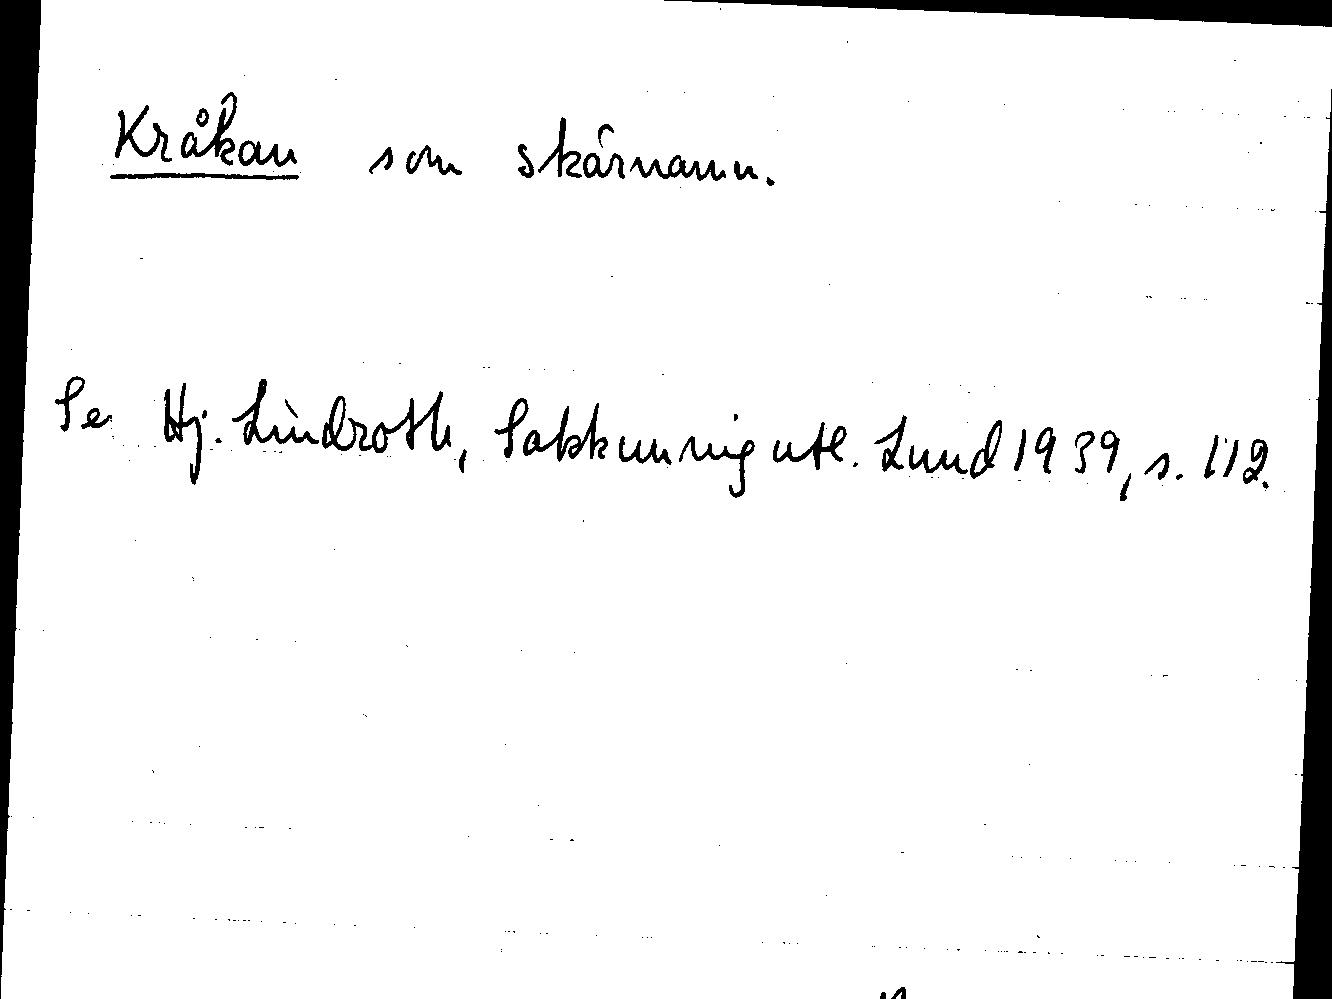 Kråkan som skärnamn.
Se Hj. Lindroth, Sakkunnig utl. Lund 1939, s. 112.